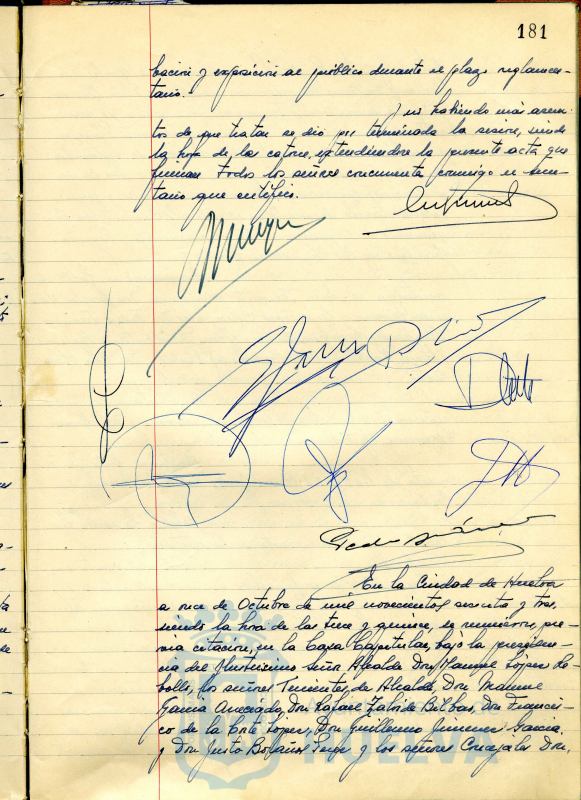 181
bación y exposición al público durante el plazo reglamen-
tario.
Y no habiendo más asun-
tos de que tratar se dió por terminada la sesión, siendo
la hora de las catorce, extendiéndose la presente acta que
firman todos los señores concurrentes conmigo el secre-
tario que certifico.
En la Ciudad de Huelva
a once de Octubre de mil novecientos sesenta y tres,
siendo la hora de las trece y quince, se reunieron, pre-
via citación, en la Casa Capitular, bajo la presiden-
cia del Ilustrísimo Señor Alcalde Don Manuel López Re-
bollo, los señores Tenientes de Alcalde, Don Manuel
García Don Rafael de Bilbao, Don Francis-
co de la Corte López, Don Guillermo Jimenez García,
y Don Justo Bolaños y los señores Concejales Don
HUELVA